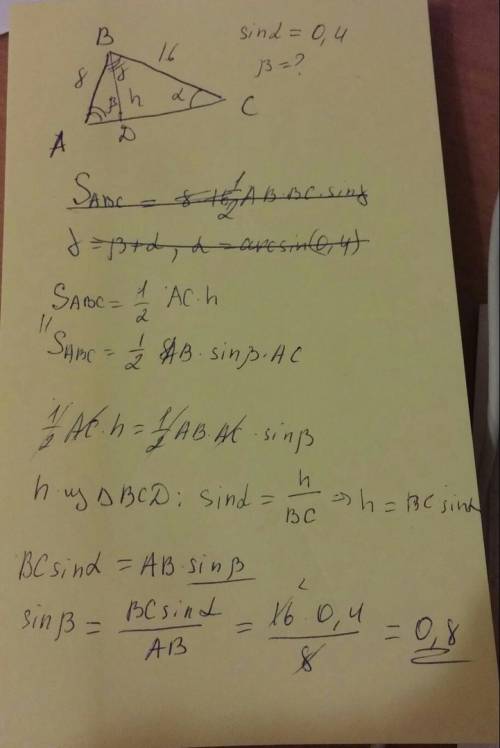 B
8
γ
16
β
h
α
A
D
C
sinα = 0,4
β = ?
S_ABC = 1/2 AB·BC·sinγ
γ = β+α, α = arcsin(0,4)
S_ABC = 1/2 AC·h
"
S_ABC = 1/2 AB·sinβ·AC
1/2 AC·h = 1/2 AB·AC·sinβ
h из ΔBCD: sinα = h/BC ⇒ h = BC sinα
BC sinα = AB·sinβ
sinβ = BC sinα/AB = 16·0,4/8 = 0,8
2